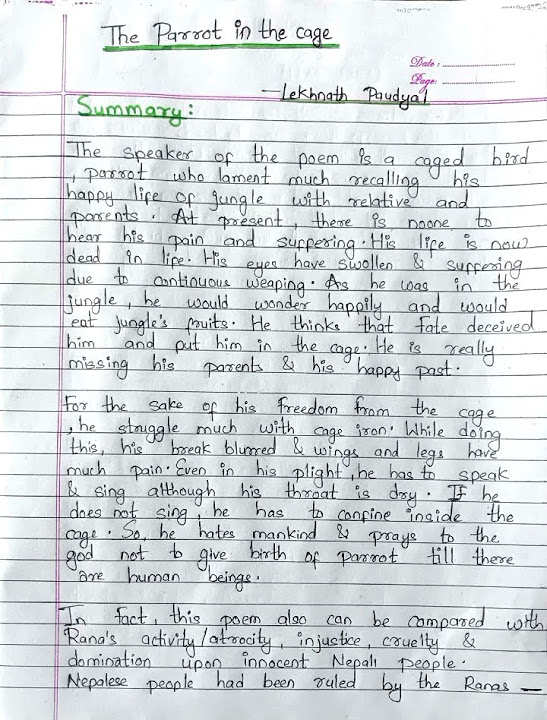 The Parrot in the cage
Date :
Page:
—Lekhnath Paudyal
Summary :
The speaker of the poem is a caged bird
, parrot who lament much recalling his
happy life of jungle with relative and
parents. At present, there is noone to
hear his pain and suffering. His life is now
dead in life. His eyes have swollen & suffering
due to continuous weaping. As he was in the
jungle, he would wonder happily and would
eat jungle's fruits. He thinks that fate deceived
him and put him in the cage. He is really
missing his parents & his happy past.
For the sake of his freedom from the cage
, he struggle much with cage iron. While doing
this, his break blurred & wings and legs have
much pain. Even in his plight, he has to speak
& sing although his throat is dry. If he
does not sing, he has to confine inside the
cage. So, he hates mankind & prays to the
god not to give birth of parrot till there
are human beings.
In fact, this poem also can be compared with
Rana's activity/atrocity, injustice, cruelty &
domination upon innocent Nepali people.
Nepalese people had been ruled by the Ranas —